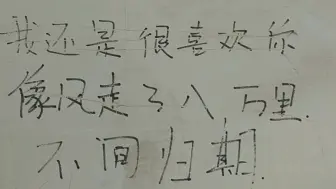 我还是很喜欢你
像风走了八万里.
不问归期.